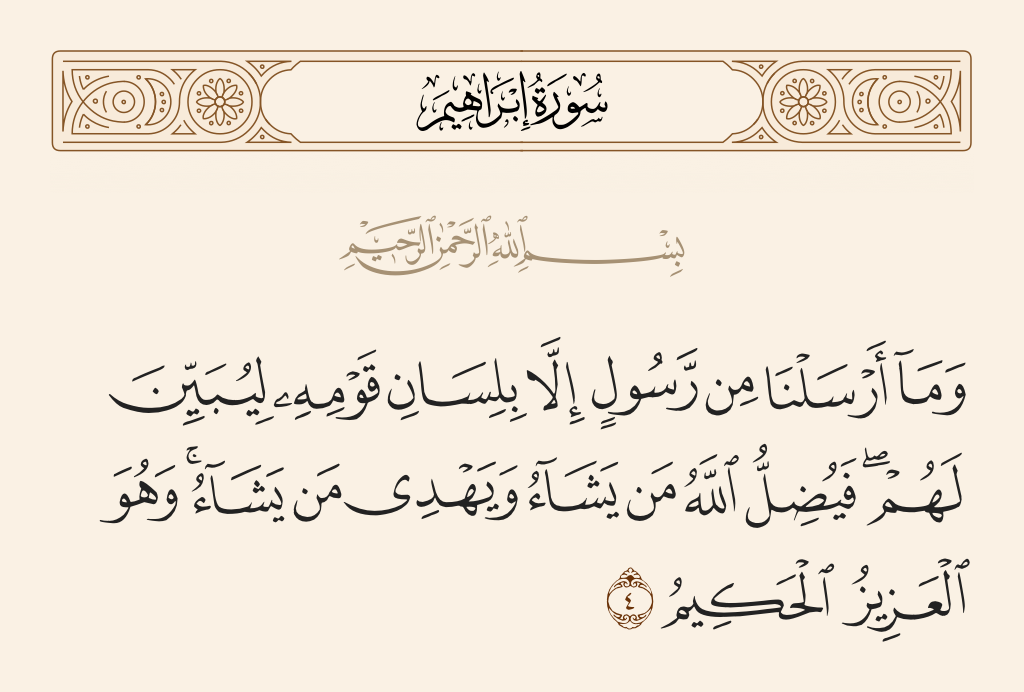 سُورَةُ إِبْرَاهِيمَ
بِسْمِ ٱللَّهِ ٱلرَّحْمَٰنِ ٱلرَّحِيمِ
وَمَآ أَرْسَلْنَا مِن رَّسُولٍ إِلَّا بِلِسَانِ قَوْمِهِۦ لِيُبَيِّنَ
لَهُمْ ۖ فَيُضِلُّ ٱللَّهُ مَن يَشَآءُ وَيَهْدِى مَن يَشَآءُ ۚ وَهُوَ
ٱلْعَزِيزُ ٱلْحَكِيمُ ٤